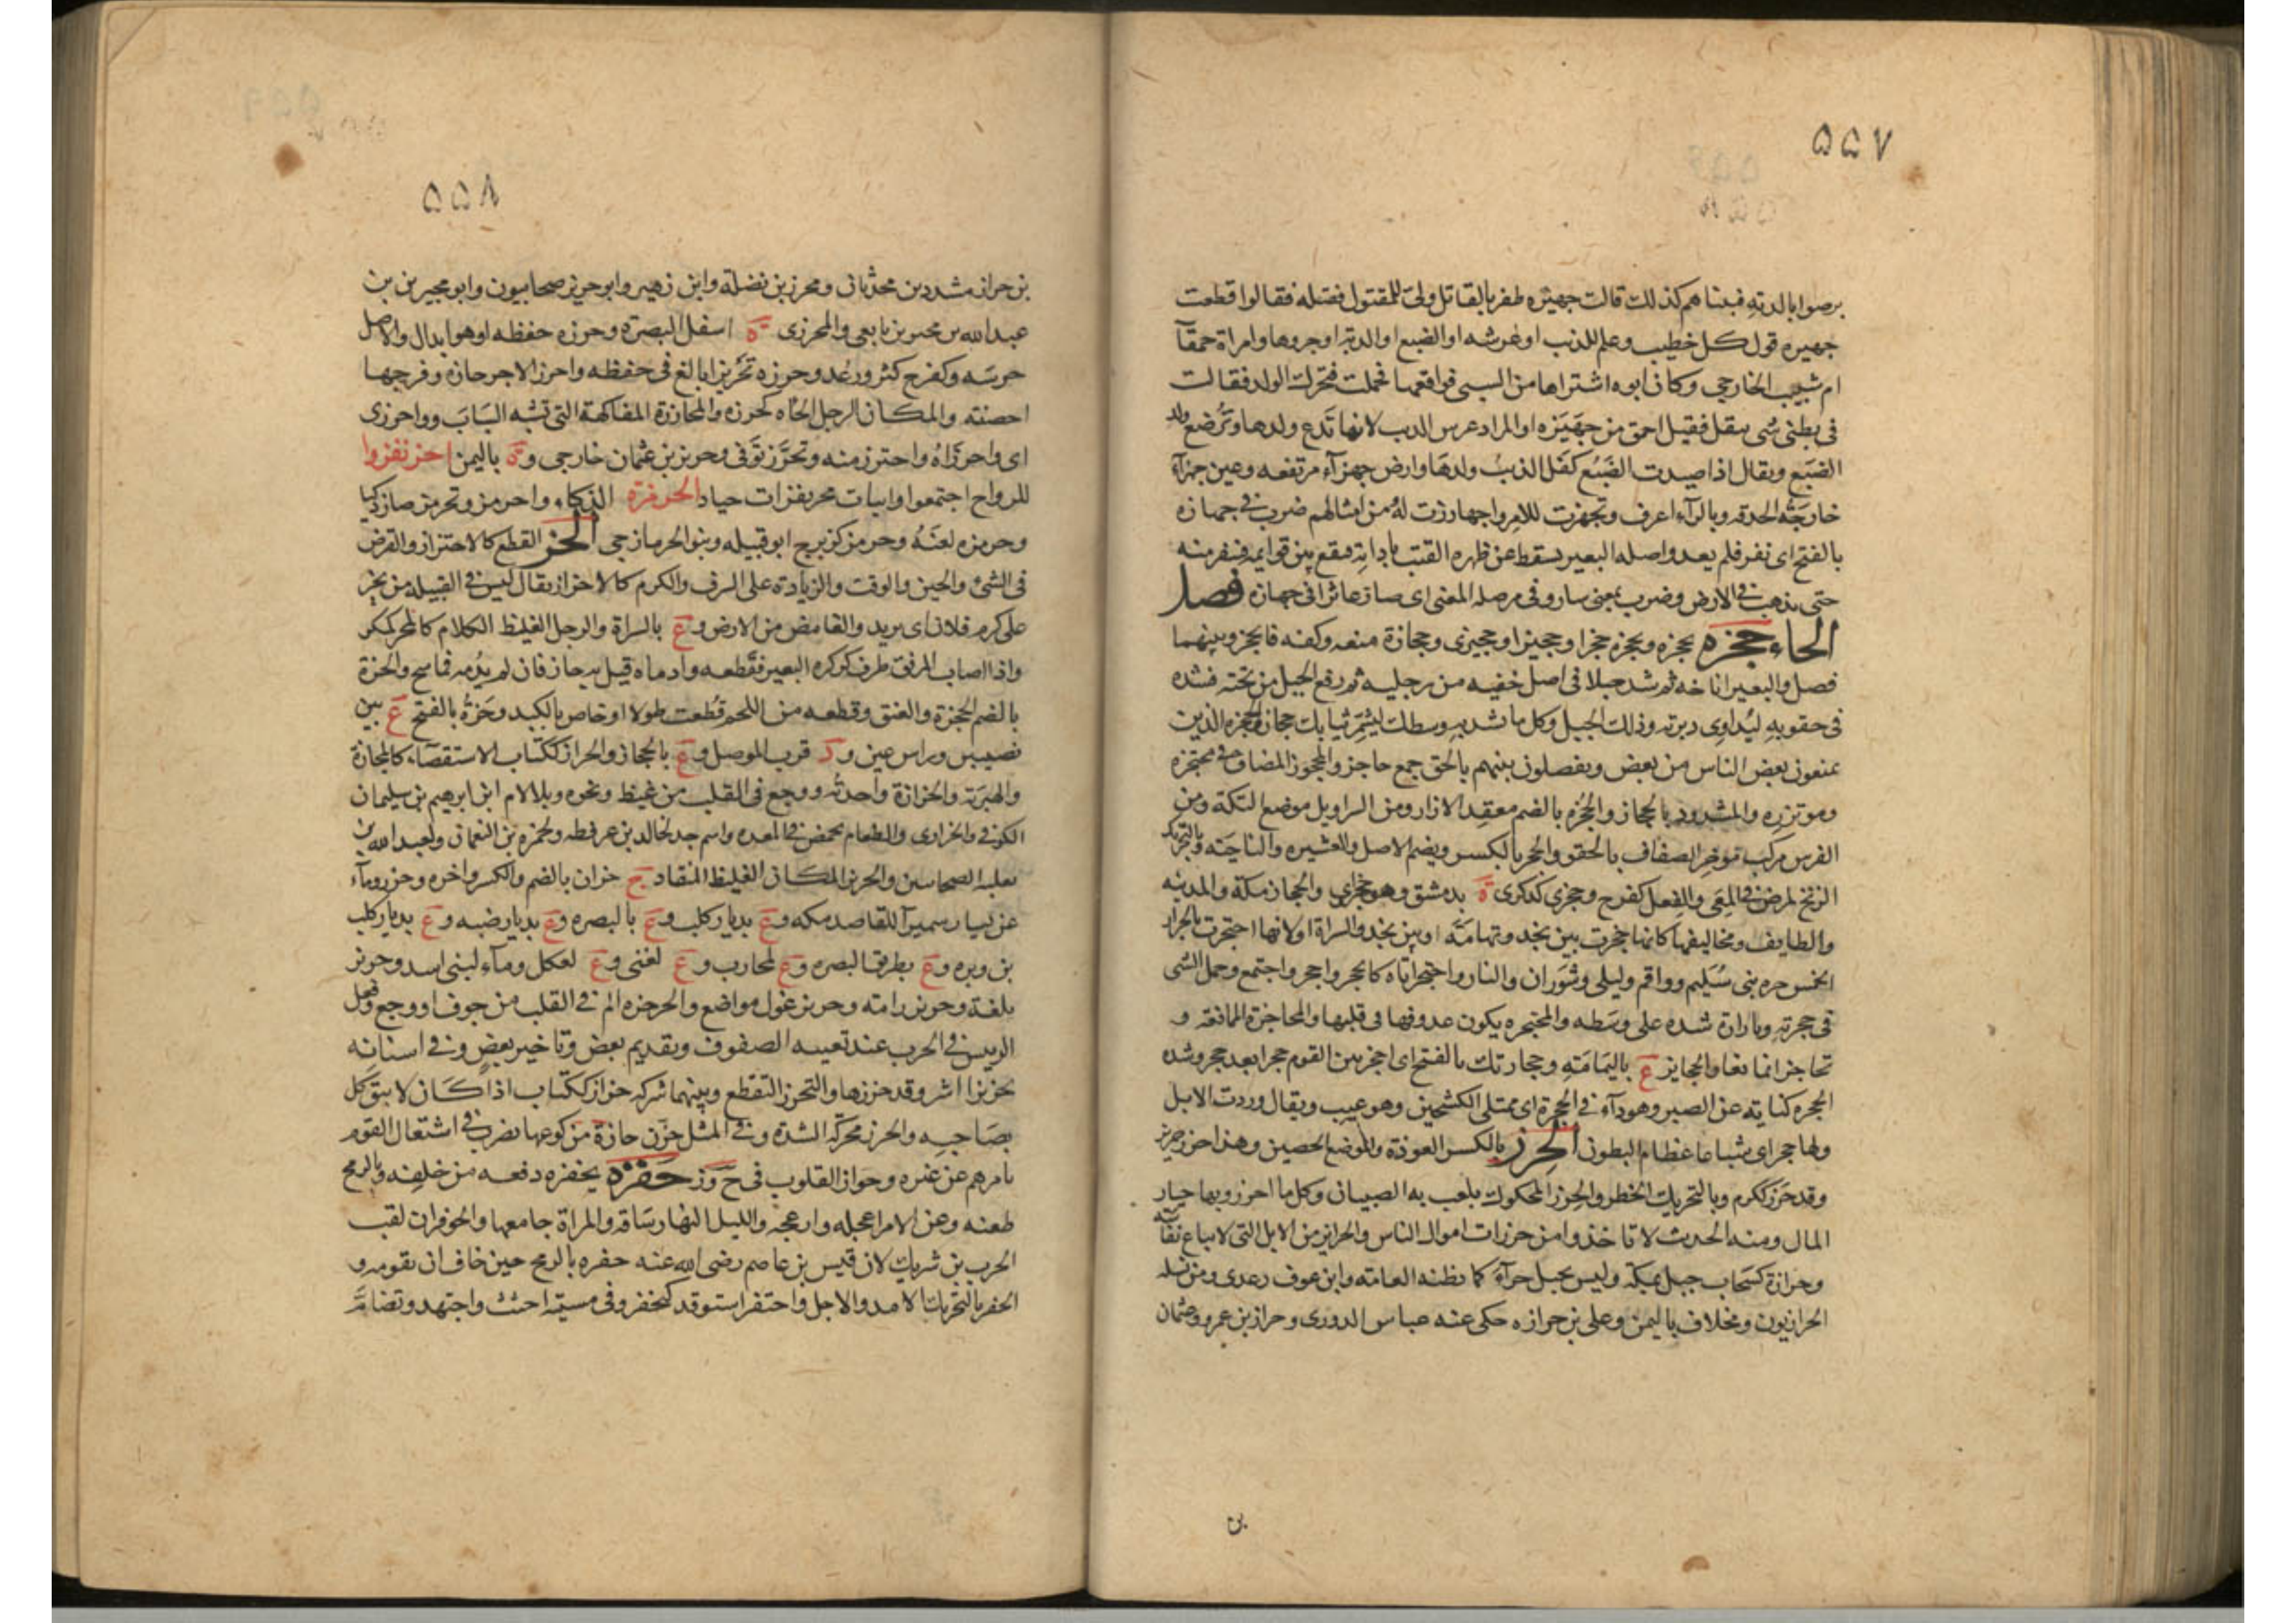 ٥٥٧
يرضوا بالدية فبيناهم كذلك قالت جهيزه ظفر بالقاتل ولى للمقتول فقتله فقالوا قطعت
جهيزه قول كل خطيب وعلم للذئب او عرسه او الضبع او الدبة او جروها وامراة حمقآ
ام شبيب الخارجي وكان ابوه اشتراها من السبى فواقعها فحملت فتحرك الولد فقالت
فى بطنى شى ينقل فقيل احمق من جهيزه او المراد عرس الذيب لانها تدع ولدها وترضع ولد
الضبع ويقال اذا صيدت الضبع كفل الذيب ولدها وارض جهزآء مرتفعه وعين جهزآء
خارجة الحدقه وبالرآء اعرف وتجهزت للامر واجهازّت له ومن امثالهم ضرب فى جهازه
بالفتح اى نفر فلم يعد واصله البعير يسقط عن ظهره القتب باداته فيقع بين قوايمه فينفر منه
حتى يذهب فى الارض وضرب بمعنى سار وفى من صله المعنى اى صار عاثرا فى جهازه فصل
الحاء حجزه يحجزه ويحجزه حجزا وحجيزا وحجيزى وحجازة منعه وكفه فانحجز وبينهما
فصل والبعير اناخه ثم شد حبلا فى اصل خفيه من رجليه ثم رفع الحبل من تحته فشده
فى حقويه ليداوى دبرته وذلك الحبل وكل ما تشد به وسطك ليشمر ثيابك حجاز والحجزه الذين
يمنعون بعض الناس من بعض ويفصلون بينهم بالحق جمع حاجز والمحجوز المصاب فى محتجزه
وموتزره والمشدود بالحجاز والحجزه بالضم معقد الازار ومن السراويل موضع التكة ومن
الفرس مركب موخر الصفاف بالحقو والحجز بالكسر ويضم الاصل والعشيره والناحية وبالتحريك
الزنخ لمرض فى المعى والفعل كفرح وحجزى كذكرى ة بدمشق وهو حجزاى والحجاز مكة والمدينه
والطايف ومخاليفها كانها حجزت بين نجد وتهامة او بين نجد والسراة او لانها احتجزت بالحرار
الخمس حره بنى سليم وواقم وليلى وشوران والنار واحتجز اتاه كانحجز واحجز واجتمع وحمل الشى
فى حجزته وبازاره شده على وسطه والمحتجزه يكون عدوفها فى قلبها والمحاجزة الممانعة و
تحاجزا تمانعا والحجايز ع باليمامة وحجازيك بالفتح اى احجز بين القوم حجزا بعد حجز وشده
الحجزه كناية عن الصبر وهو دآء فى الحجزة اى ممتلى الكشحين وهو عيب ويقال وردت الابل
ولها حجز اى شباعا عظام البطون الحرز بالكسر العوذة والموضع الحصين وهذا حرز حريز
وقد حرز ككرم وبالتحريك الخطر والجوز المحكوك يلعب به الصبيان وكل ما احرز وبهاء خيار
المال ومنه الحديث لا تاخذوا من حرزات اموال الناس والحرايز من الابل التى لا تباع نفاسة
وحرازة كسحاب جبل بمكة وليس بجبل حرآء كما يظنه العامة وابن عوف بن عدى ومن نسله
الحرازيون ومخلاف باليمن وعلى بن حرازه حكى عنه عباس الدورى وحراز بن عمرو وعثمان
بن
٥٥٨
بن حراز مشددين محدثان ومحرز بن نضلة وابن زهير وابو حريز صحابيون وابو محيريز بن
عبد الله بن محيريز تابعى والمحرزى ة اسفل البصرة وحرزه حفظه او هو ابدال والاصل
حرسه وكفرح كثر ورعه وحرزه تحريزا بالغ فى حفظه واحرز الاجر حازه وفرجها
احصنته والمكان الرجل الجاه كحرزه والمحارزة المفاكهة التى تشبه السباب وواحرزى
اى واحرزاه واحترز منه وتحرز توقى وحريز بن عثمان خارجى وة باليمن احرنفزوا
للرواح اجتمعوا وابيات محرنفزات جياد الحرمزة الذكاء واحرمز وتحرمز صار ذكيا
وحرمزه لعنه وحرمز كزبرج ابو قبيله وبنو الحرماز حى الحز القطع كالاحتزاز والفرض
فى الشئ والحين والوقت والزيادة على الشرف والكرم كالاحزاز يقال ليس فى القبيلة من يحز
على كرم فلان اى يزيد والغامض من الارض وع بالسراة والرجل الغليظ الكلام كالمحز كمكر
واذا اصاب المرفق طرف كركره البعير فقطعه وادماه قيل به حاز فان لم يدمه فماسح والحزة
بالضم الحجزة والعنق وقطعه من اللحم قطعت طولا او خاص بالكبد وحزة بالفتح ع بين
نصيبين وراس عين ود قرب الموصل وع بالحجاز والحزاز ككتاب الاستقصاء كالمحازة
والهبرية والحزازة واحدته ووجع فى القلب من غيظ ونحوه وبلا لام ابن ابرهيم بن سليمان
الكوفى والحزازى والطعام يحمض فى المعده واسم جد لخالد بن عرفطه ولحمزه بن النعمان ولعبد الله بن
ثعلبه الصحابيين والحزيز المكان الغليظ المنقاد ج حزان بالضم والكسر واحزه وحزز ومآء
عن يسار سميرآ للقاصد مكه وع بديار كلب وع بالبصره وع بديار ضبه وع بديار كلب
بن وبره وع بطريق البصره وع لمحارب وع لغنى وع لعكل ومآء لبنى اسد وحزيز
تلعة وحزيز رامه وحزيز غول مواضع والحزحزه الم فى القلب من خوف او وجع وفعل
الرييس فى الحرب عند تعبيه الصفوف وتقديم بعض وتاخير بعض وفى اسنانه
تحزيز اشر وقد حززها والتحزز التقطع وبينهما شركه حزاز ككتاب اذا كان لا يثق كل
بصاحبه والحزز محركه الشدة وفى المثل حزت حازة من كوعها يضرب فى اشتغال القوم
بامرهم عن غيره وحواز القلوب فى ح و ز حفزه يحفزه دفعه من خلفه وبالرمح
طعنه وعن الامر اعجله وازعجه والليل النهار ساقه والمراة جامعها والحوفزان لقب
الحرث بن شريك لان قيس بن عاصم رضى الله عنه حفزه بالرمح حين خاف ان يفوته و
الحفز بالتحريك الامد والاجل واحتفز استوفز كتحفز وفى مشيته احتث واجتهد وتضام